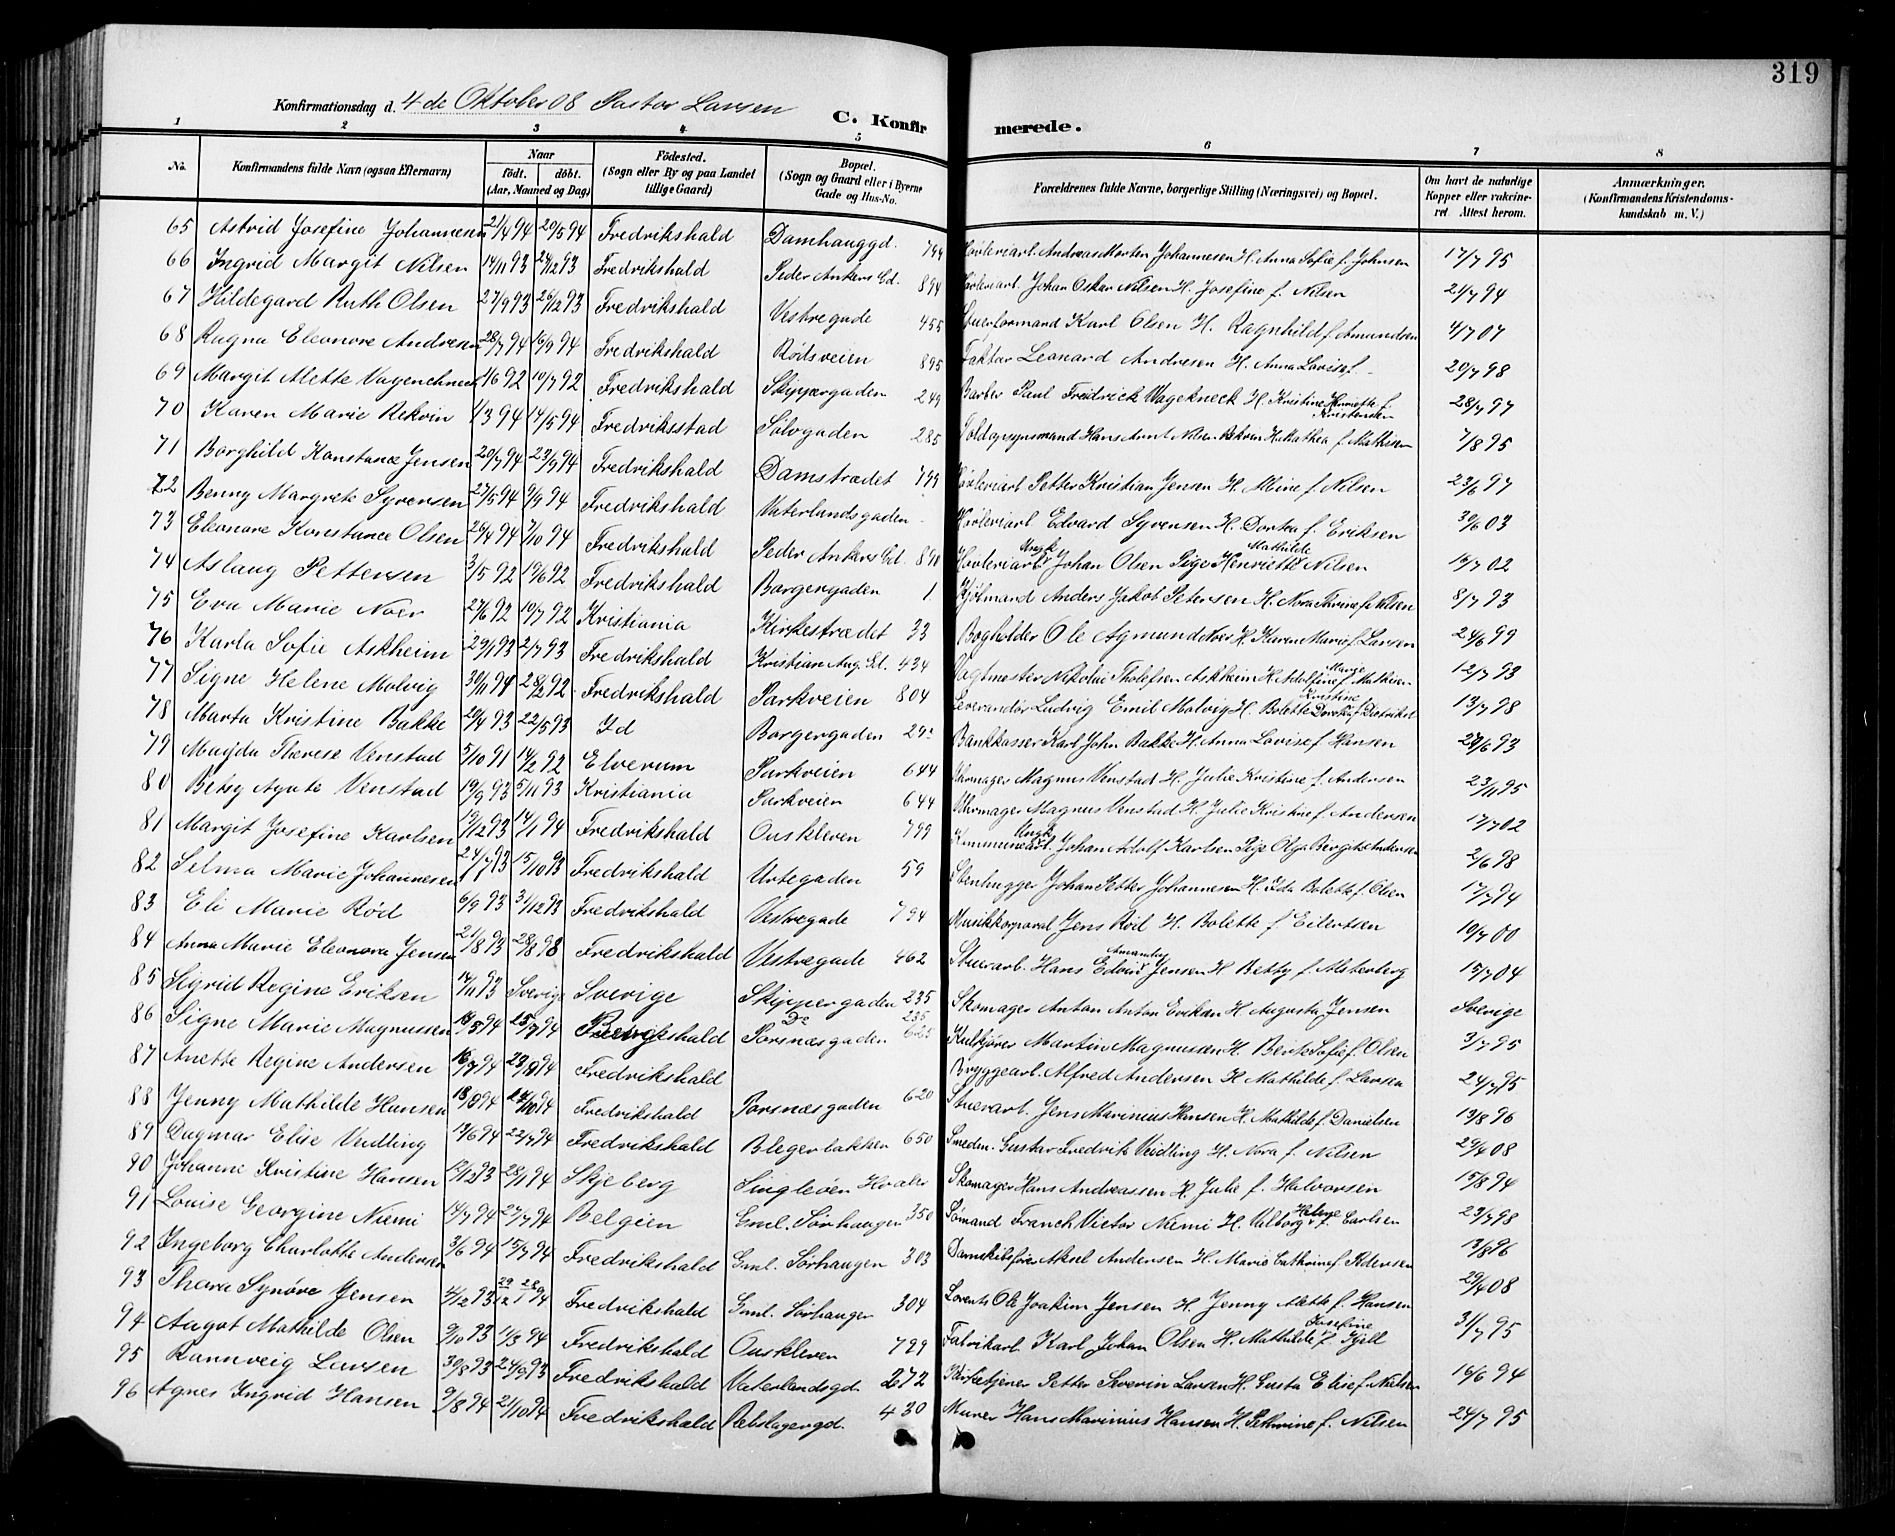 319
Konfirmationsdag d. 4 de Oktober 08 Pastor Larsen
C. Konfirmerede.
1 2 3 4 5 6 7 8
No. Konfirmandens fulde Navn (ogsaa Efternavn) Naar født. døbt. (Aar, Maaned og Dag) Fødested. (Sogn eller By og paa Landet tillige Gaard) Bopæl. (Sogn og Gaard eller i Byerne Gade og Hus-No. Forældrenes fulde Navne, borgerlige Stilling (Næringsvei) og Bopæl. Om havt de naturlige Kopper eller vakcineret Attest herom. Anmærkninger. (Konfirmandens Kristendomskundskab m. V.)
65 Astrid Josefine Johannesen 21/4 94 20/5 94 Fredrikshald Damhauggd. 744 Høvleriarb. Andreas Morten Johannesen H. Anna Sofie f. Johnsen 17/7 95
66 Ingrid Margit Nilsen 14/11 93 24/12 93 Fredrikshald Peder Ankers Gd. 894 Høvleriarb. Johan Oskar Nilsen H. Josefine f. Nilsen 21/7 94
67 Hildegard Ruth Olsen 27/9 93 26/12 93 Fredrikshald Vestregade 455 Stuerformand Karl Olsen H. Ragnhild f. Amundsen 4/7 07
68 Ragna Eleonore Andresen 28/7 94 16/9 94 Fredrikshald Rødsveien 895 Faktor Leonard Andresen H. Anna Lovise f. - 20/7 98
69 Margit Alette Vagenchneck 4/6 92 10/7 92 Fredrikshald Skippergaden 249 Barber Paul Fredrick Vagekneck H. Kristine Henriette f. Kristensen 28/7 97
70 Karen Marie Rekvin 1/3 94 14/5 94 Fredriksstad Sølvgaden 285 Toldopsynsmand Hans Arnt Nilsen Rekvin H. Mathea f. Mathisen 7/8 95
71 Borghild Konstance Jensen 20/7 94 23/9 94 Fredrikshald Damstrædet 799 Høvleriarb Petter Kristian Jensen H. Mine f. Nilsen 23/6 97
72 Benny Margrete Syvensen 27/5 94 9/9 94 Fredrikshald Vaterlandsgaden - Høvleriarb Edvard Syvensen H. Dortea f. Eriksen 30/6 03
73 Eleonore Konstance Olsen 26/4 94 7/10 94 Fredrikshald Peder Ankers Gd. 898 Høvleriarb Ungk. Johan Olsen Pige Henriette Mathilde Nilsen 14/7 02
74 Aslaug Pettersen 3/5 92 19/6 92 Fredrikshald Borgergaden 1 Sjømand Anders Jakob Petersen H. Nora Thrine f. Nilsen 8/7 93
75 Eva Marie Noer 27/6 92 10/7 92 Kristiania Kirkestrædet 33 Bogholder Ole Agmund Noer H. Karen Marie f. Larsen 24/6 99
76 Karla Sofie Askheim 29/1 93 2/7 93 Fredrikshald Kristian Aug. Gd. 434 Vagtmester Nikolai Tholefsen Askheim H. Adolfine Marie f. Mathisen 12/7 93
77 Signe Helene Molvig 30/11 91 28/2 92 Fredrikshald Parkveien 804 Leverandør Ludvig Emil Molvig H. Bolette Dorthea Kristine f. 13/7 98
78 Marta Kristine Bakke 20/4 93 22/5 93 Id Borgergaden Bankkasser Karl John Bakke H. Anna Lovise f. Hansen 24/6 93
79 Magda Therese Venstad 5/10 91 14/2 92 Elverum Parkveien 644 Uhrmager Magnus Venstad H. Julie Kristine f. Andersen 23/11 95
80 Betsy Agate Venstad 19/9 93 5/11 93 Kristiania Parkveien 644 Uhrmager Magnus Venstad H. Julie Kristine f. Andersen 17/7 02
81 Margit Josefine Karlsen 19/12 93 14/1 94 Fredrikshald Ouskleven 799 Kommunearb. Ungk. Johan Adolf Karlsen Pige Olga Bergitte Andersen 2/6 98
82 Selma Marie Johannesen 24/7 93 15/10 93 Fredrikshald Urtegaden 59 Stenhugger Johan Petter Johannesen H. Ida Bolette f. Olsen 17/7 94
83 Eli Marie Rød 6/9 93 31/12 93 Fredrikshald Vestregade 794 Musikkorporal Jens Rød H. Bolette f. Eilertsen 10/7 00
84 Anna Marie Eleonora Jensen 21/8 93 28/8 98 Fredrikshald Vestregade 462 Stuerarb. Hans Edvin Amandus Jensen H. Betty f. Alsterberg 15/7 04
85 Sigrid Regine Eriksen 14/11 93 Sverige Sverige Skippergaden 235 Skomager Anton Anton Eriksen H Augusta Jensen Sverige
86 Signe Marie Magnussen 14/5 94 15/7 94 Berg Do 235 Kulkjører Martin Magnusen H. Berte Sofie f. Olsen 3/7 95
87 Anette Regine Andersen 16/7 94 29/8 94 Fredrikshald Porsnæsgaden 625 Bryggearb. Alfred Andersen H. Mathilde f. Larsen 24/7 95
88 Jenny Mathilde Hansen 18/8 94 14/10 94 Fredrikshald Porsnæsgaden 620 Stuerarb. Jens Marinius Hansen H. Mathilde f. Danielsen 13/8 96
89 Dagmar Elise Veidling 17/6 94 22/7 94 Fredrikshald Blegerbakken 650 Smedm. Gustav Fredrik Veidling H. Nora f. Nilsen 29/4 08
90 Johanne Kristine Hansen 12/12 93 28/1 94 Skjeberg Singleøen Hvaler Skomager Hans Andreassen H. Julie f. Halvorsen 15/8 94
91 Louise Georgine Niemi 14/7 94 27/7 94 Belgien Gml. Sørhaugen 350 Sømand Franch Victor Niemi H. Valborg Helene f. Carlsen 23/7 98
92 Ingeborg Charlotte Andersen 3/6 94 15/7 94 Fredrikshald Gml. Sørhaugen 303 Damskibsfører Aksel Andersen H. Marie Cathrine f. Pedersen 13/8 96
93 Thora Synøve Jensen 4/12 93 29/12 28/1 94 Fredrikshald Gml. Sørhaugen 304 Lorents Ole Joakim Jensen H. Jenny Alette f. Hansen 29/4 08
94 Aagot Mathilde Olsen 9/10 93 11/3 94 Fredrikshald Ouskleven 729 Fabrikarb Karl Johan Olsen H. Mathilde Josefine f. Kjell 31/7 95
95 Rannveig Larsen 30/8 93 24/9 93 Fredrikshald Vaterlandsgd. 272 Petter Severin Larsen H. Gusta Elise f. Nielsen 16/6 94
96 Agnes Ingrid Hansen 9/8 94 21/10 94 Fredrikshald Rebslagergd. 430 Murer Hans Marinius Hansen H. Pethrine f. Nilsen 24/7 95